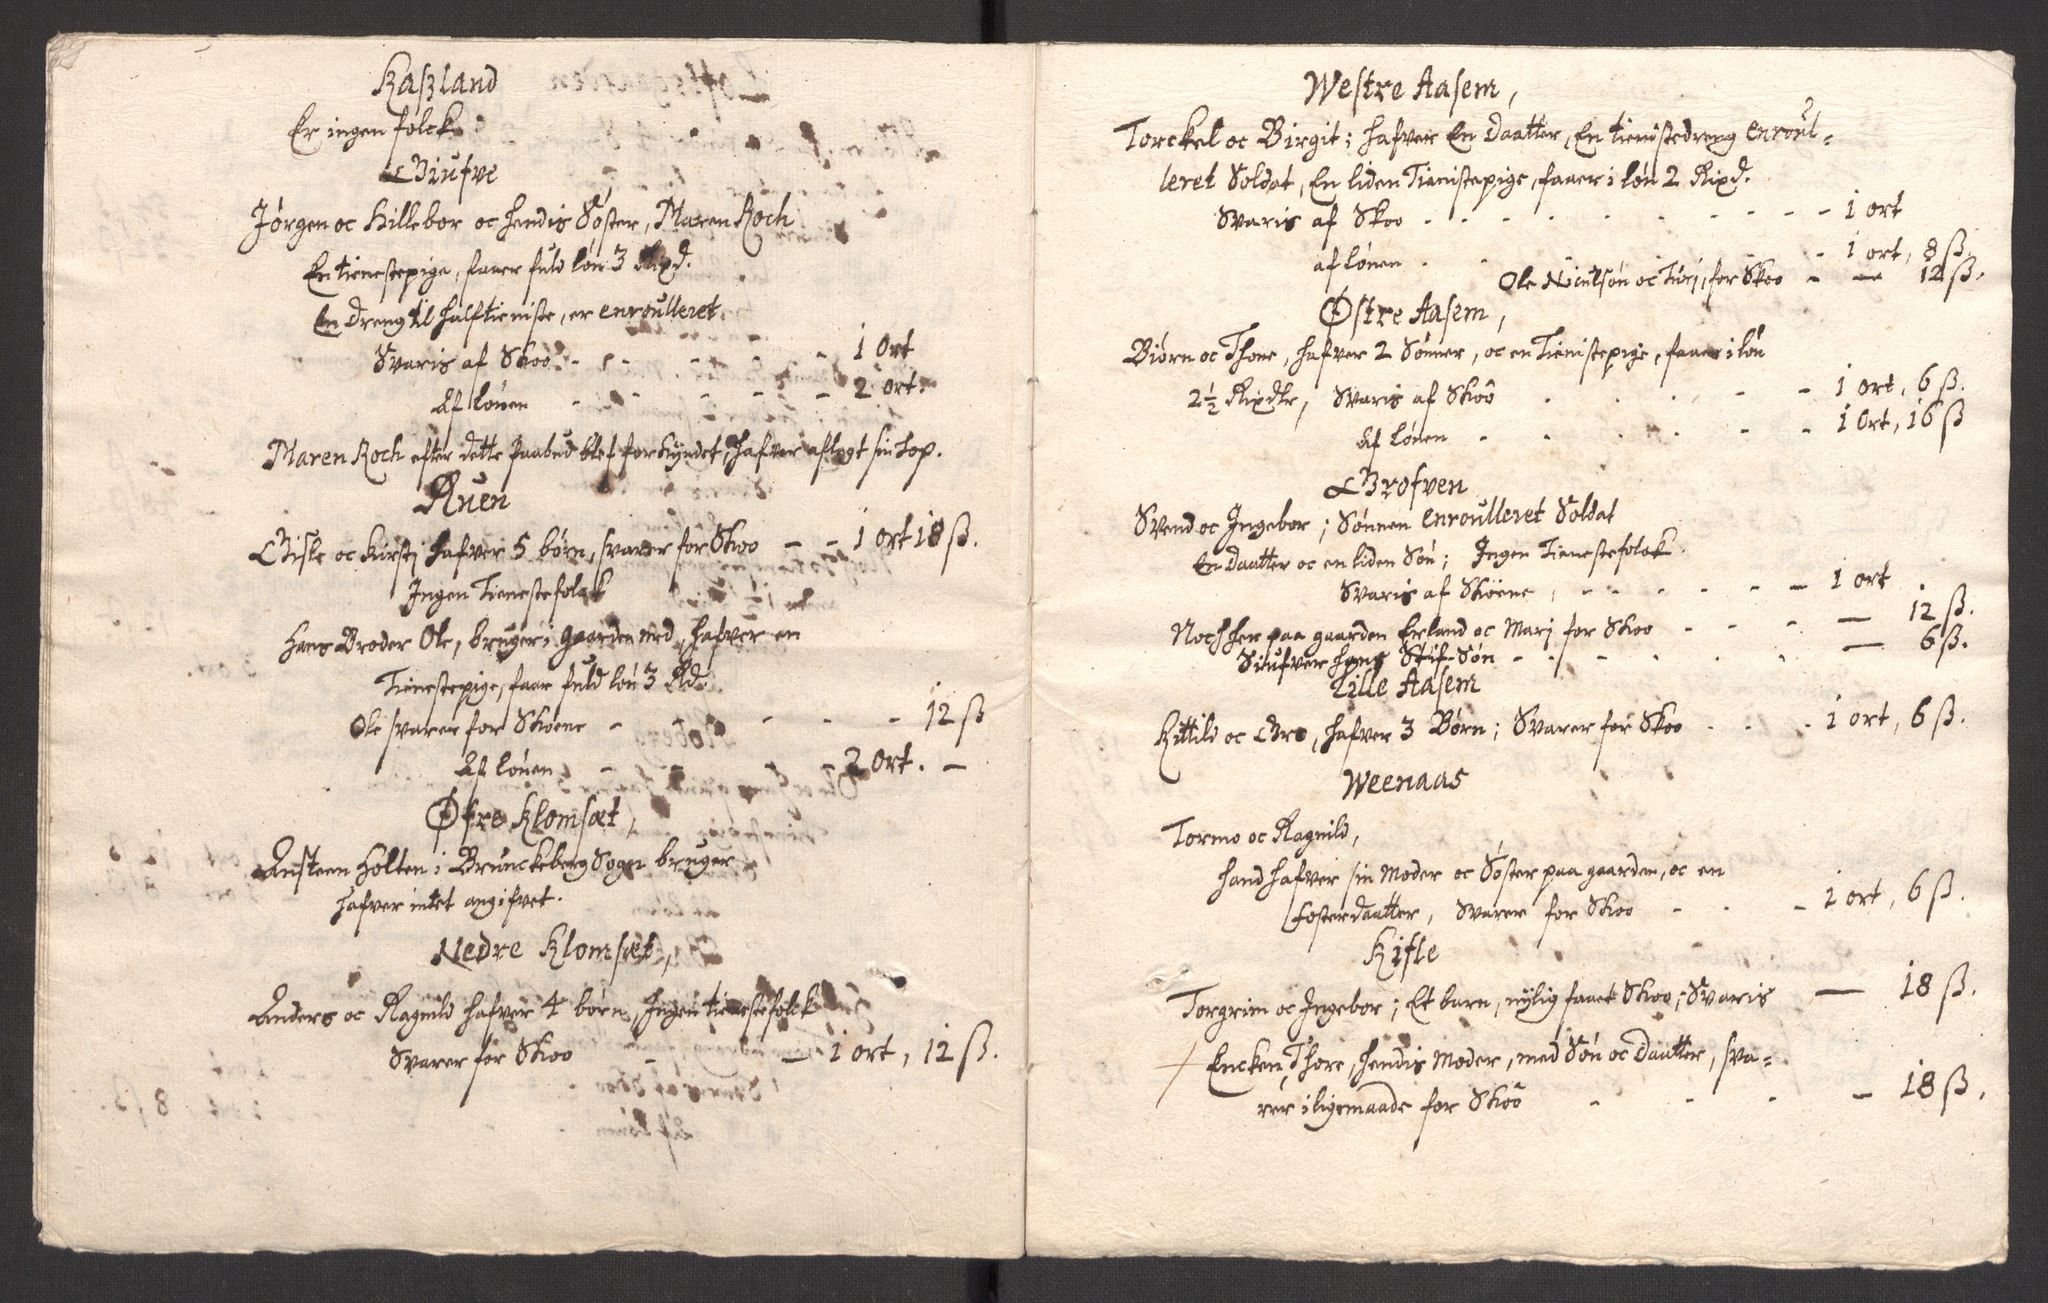 Kaszland
Er ingen folck
Giufve
Jørgen oc Hillebor oc hendis Søster, Maren Koch
En tienestepige, faaer fuld løn 3 Rixd.
En dreng til half tieniste, er enroulleret
Svaris af Skoo - - - - - - 1 Ort
Af lønen - - - - - 2 ort.
Maren Koch efter dette Paabud blef forkyndet, hafver aflagt sin top.
Ruen
Gisle oc Kirstj hafver 5 børn, svarer for Skoo - - 1 ort 18 ß.
Ingen Tienestefolck
Hans Broder Ole, bruger i gaarden med, hafver en
Tienestepige, faar fuld løn 3 Rd.
Ole svarer for Skoene - - - - 12 ß
Af lønen - - - - 2 Ort. -
Øfre Klomsæt,
Austeen Holten i Brunckeberg Sogn bruger
hafver intet angifvet.
Nedre Klomsæt,
Anders oc Ragnild hafver 4 børn, Ingen tienestefolck
Svarer for Skoo - - 1 ort, 12 ß.
Westre Aasem,
Torckel oc Birgit; hafver En Daatter, En tienistedreng enroul-
leret Soldat, En liden Tienistepige, faaer i løn 2 Rixd.
Svaris af Skoo - - - - - - - - 1 ort
af lønen - - - 1 ort, 8 ß.
Ole Nielsøn oc Turj, for Skoo - - 12 ß.
Østre Aasem,
Biørn oc Thone, hafver 2 Sønner, oc en Tienistepige, faaer i løn
2½ Rixdlr, Svaris af Skoo - - - - - 1 ort, 6 ß.
Af lønen - - - - - - 1 Ort, 16 ß
Grofven
Svend oc Ingebor; Sønnen enroulleret Soldat
En Daatter oc en liden Søn; Ingen Tienestefolck.
Svaris af Skoene, - - - - - - 1 ort
Noch her paa gaarden Erland oc Marj for Skoo - - - - 12 ß.
Siufver hans Stif-Søn - - - - - - 6 ß.
Lille Aasem
Kittild oc Gro, hafver 3 Børn; Svarer for Skoo - - - 1 ort, 6 ß.
Weenaas
Tormo oc Ragnild,
hand hafver sin Moder oc Søster paa gaarden, oc en
fosterdaatter, Svarer for Skoo - - - 1 ort, 6 ß.
Kifle
Torgrim oc Ingebor; Et barn, nylig faaet Skoo; Svaris - 18 ß.
Encken, Thore, hendis Moder, med Søn oc Daatter, sva-
rer i ligemaade for Skoo - - - - 18 ß.